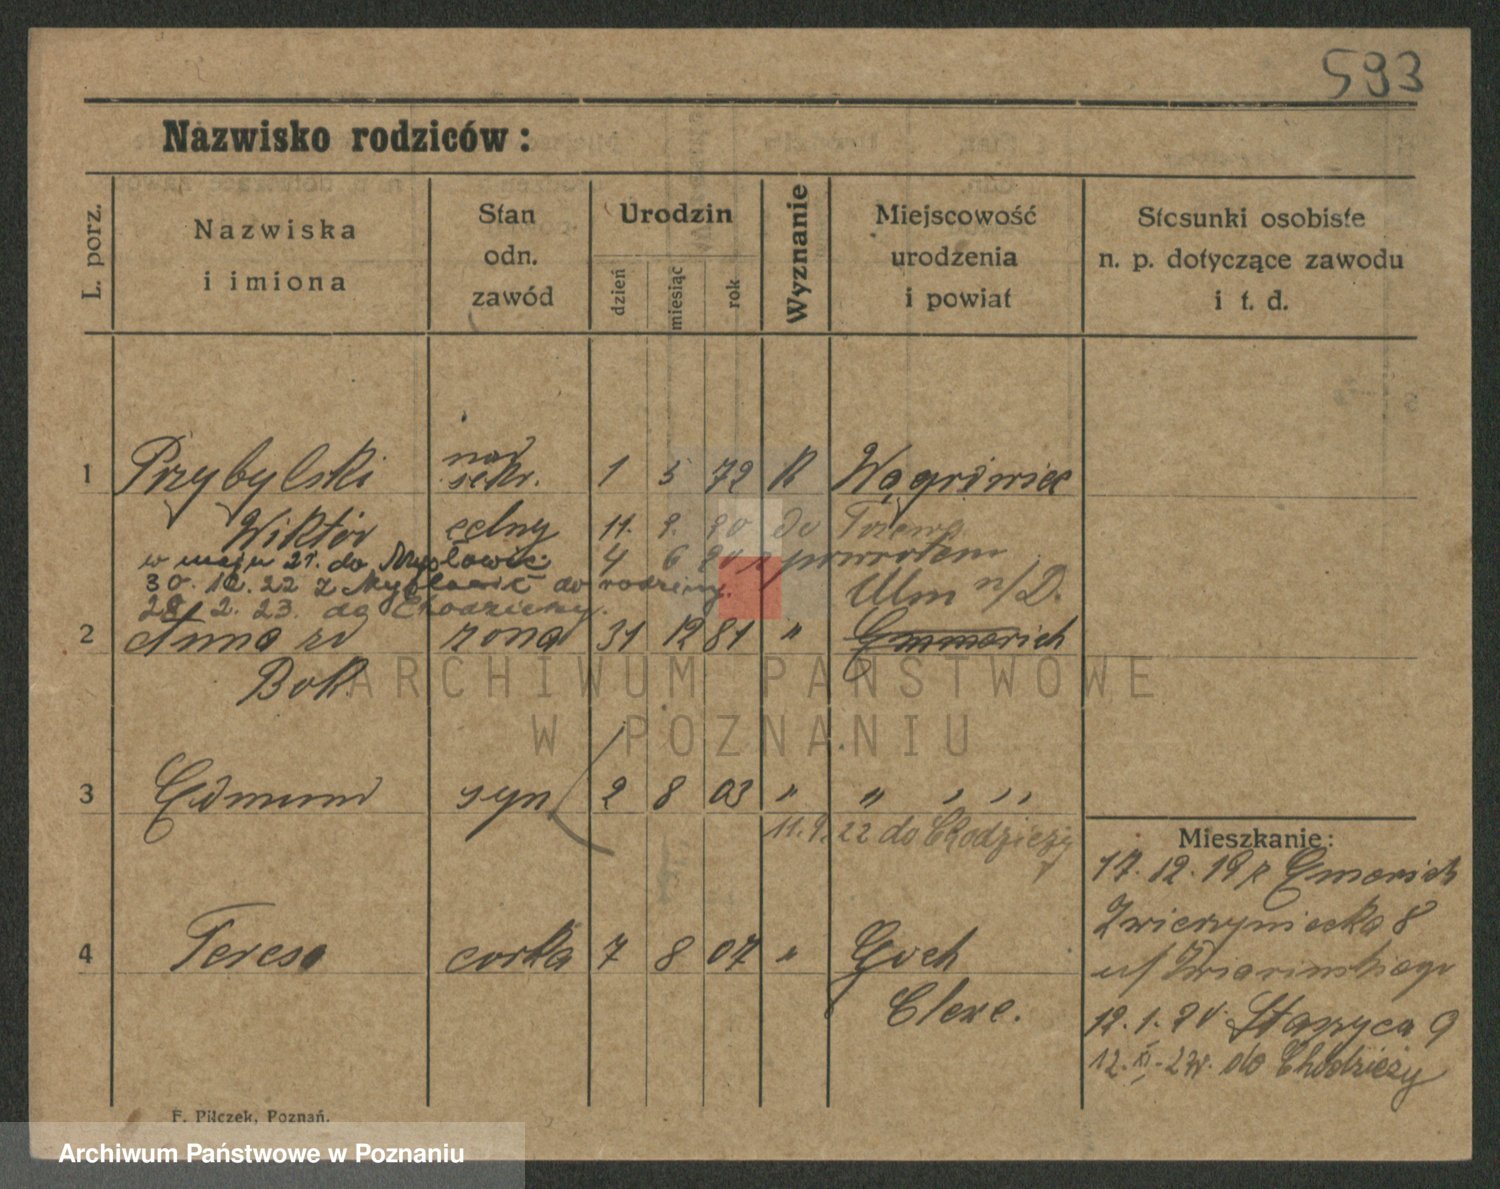 593
Nazwisko rodziców:
L. porz.
Nazwiska
i imiona
Stan
odn.
zawód
Urodzin
dzień
miesiąc
rok
Wyznanie
Miejscowość
urodzenia
i powiat
Stosunki osobiste
n. p. dotyczące zawodu
i t. d.
nad
1 Przybylski sekr. 1 5 72 R Wągrówiec
Wiktór celny 11. 9. 20 do
w maju 21. do Mysłowic 4 6 z powrotem
30. 12. 22 z Mysłowic do rodziny.
Ulm n/D.
28. 2. 23. do Chodzieży.
2 Anna zd żona 31 12 81 " Emmerich
Bok
3 Edmund syn 2 8 03 " " " "
11. 9. 22 do Chodzieży
4 Teresa corka 7 8 07 " Goch
Cleve.
Mieszkanie:
17. 12. 19 z Emerich
Zwierzyniecka 8
u/
12. 1. 20. Staszyca 9
12. XI. 22r. do Chodzieży
F. Pilczek, Poznań.
ARCHIWUM PAŃSTWOWE
W POZNANIU
Archiwum Państwowe w Poznaniu